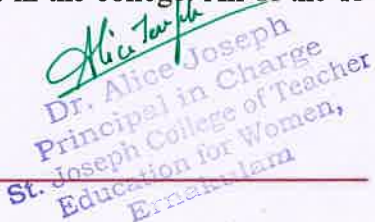 in the college
Alice Joseph
Dr. Alice Joseph
Principal in Charge
St. Joseph College of Teacher
Education for Women,
Ernakulam